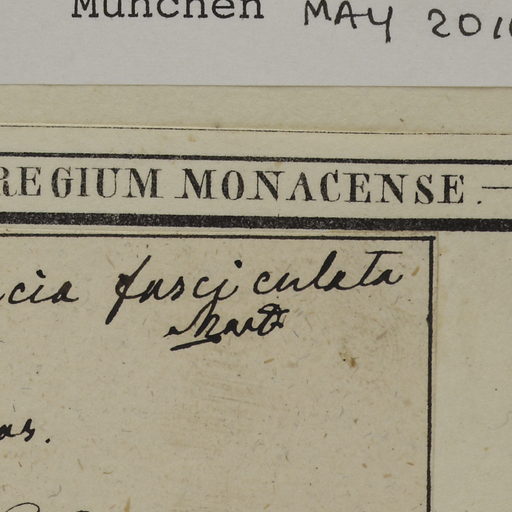 München MAY 201
REGIUM MONACENSE.
cia fasciculata
Mart
as.